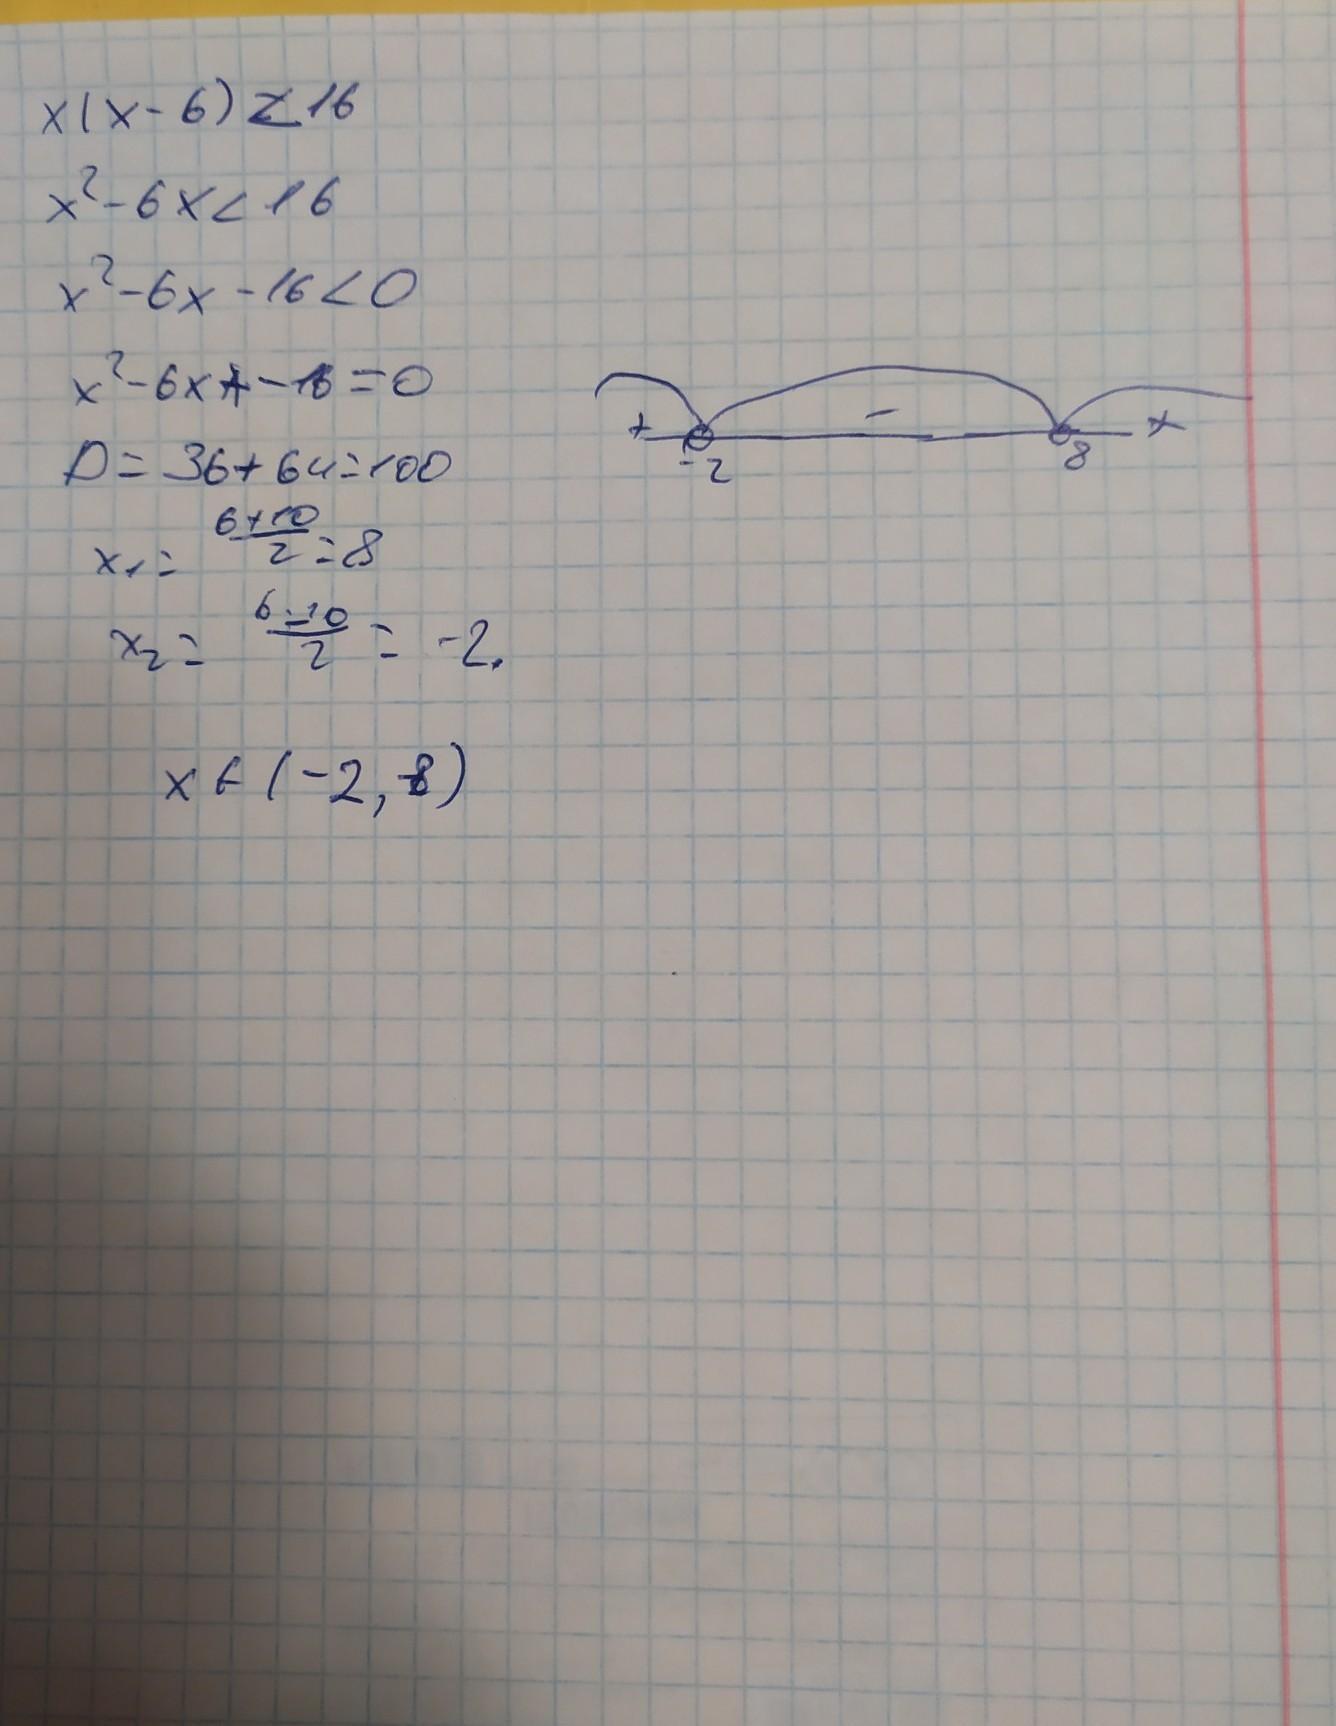 x(x-6) < 16
x²-6x < 16
x²-6x-16<0
x²-6x-16=0
D=36+64=100
x₁= (6+10)/2 = 8
x₂= (6-10)/2 = -2.
x ∈ (-2, 8)
+ - +
-2 8